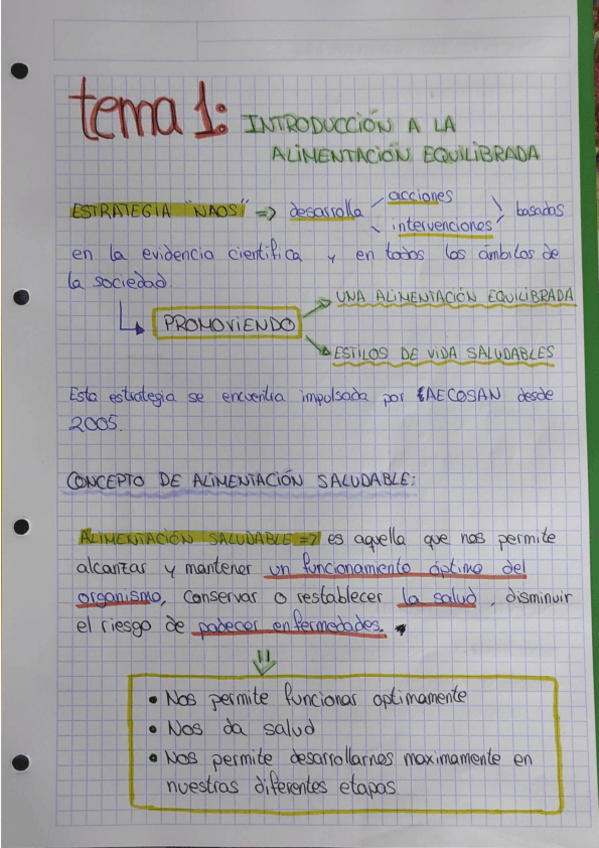 tema 1: INTRODUCCIÓN A LA
ALIMENTACIÓN EQUILIBRADA
ESTRATEGIA "NAOS" => desarrolla acciones intervenciones basadas
en la evidencia científica y en todos los ámbitos de
la sociedad.
PROMOVIENDO
UNA ALIMENTACIÓN EQUILIBRADA
ESTILOS DE VIDA SALUDABLES
Esta estrategia se encuentra impulsada por AECOSAN desde
2005.
CONCEPTO DE ALIMENTACIÓN SALUDABLE:
ALIMENTACIÓN SALUDABLE => es aquella que nos permite
alcanzar y mantener un funcionamiento óptimo del
organismo, conservar o restablecer la salud, disminuir
el riesgo de padecer enfermedades.
• Nos permite funcionar optimamente
• Nos da salud
• Nos permite desarrollarnos maximamente en
nuestras diferentes etapas